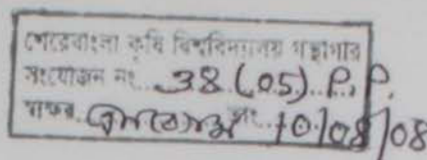 শেরেবাংলা কৃষি বিশ্ববিদ্যালয় গ্রন্থাগার
সংযোজন নং 38 (05) P.P.
স্বাক্ষর তাং 10/08/08